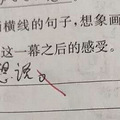 画横线的句子,想象画
这一幕之后的感受。
想说。